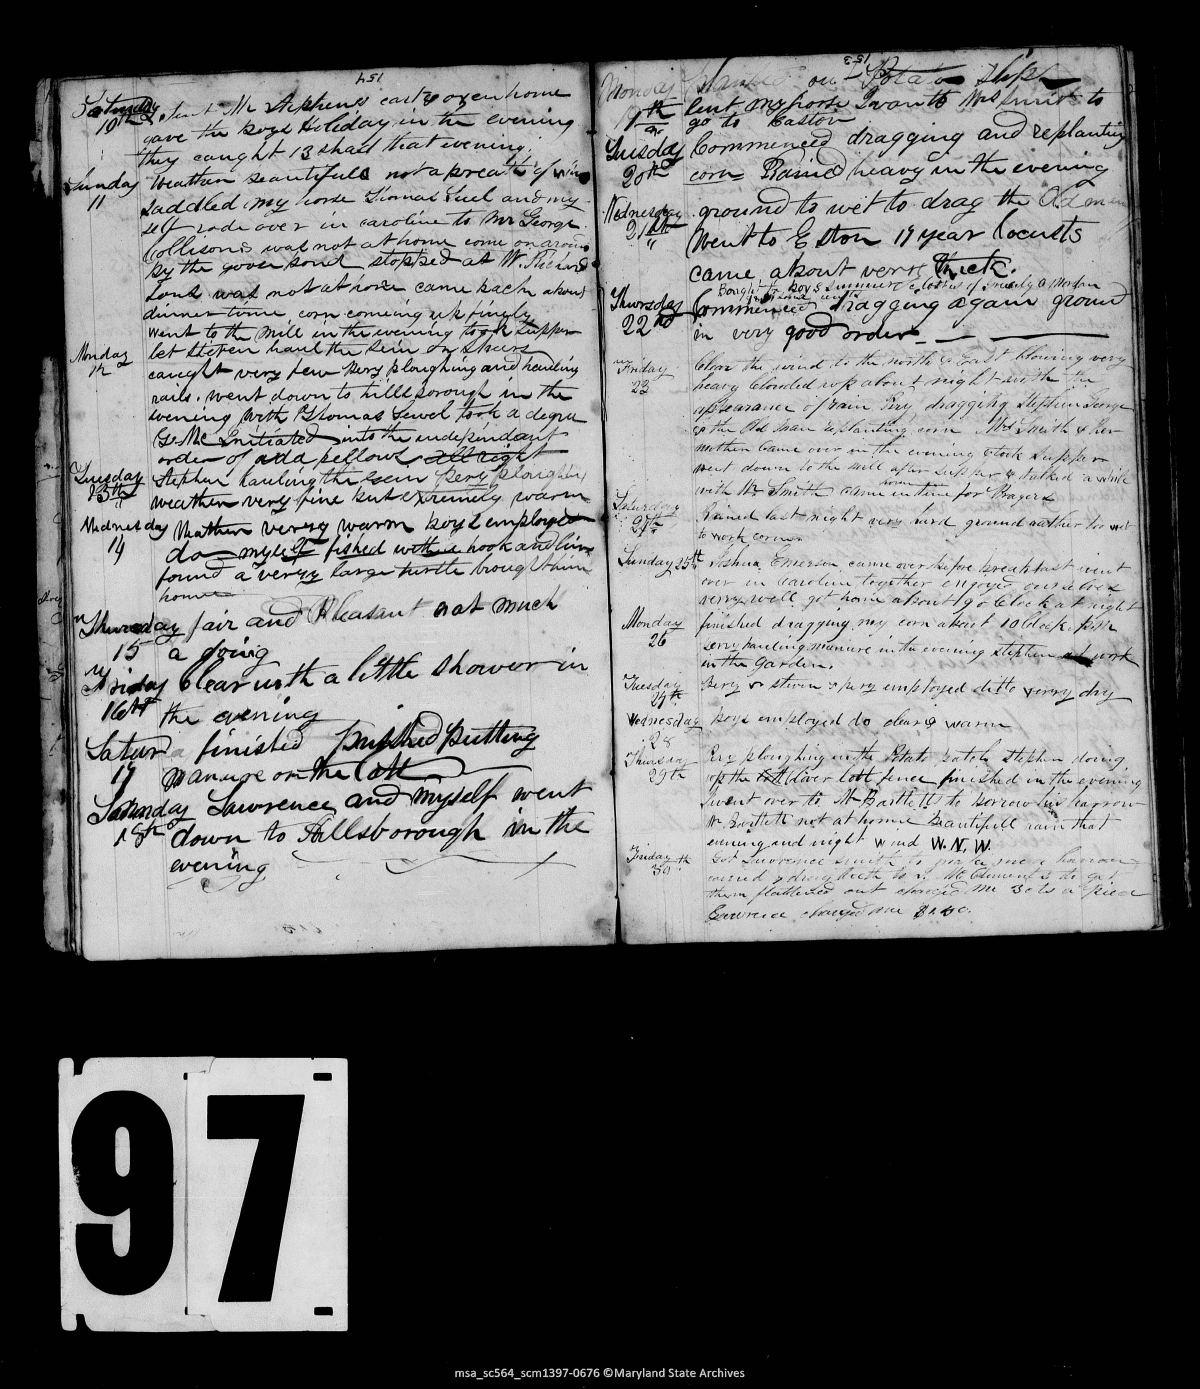 154
Saturday Sent Mr Stephens cart & oxen home
10th gave the boys Holiday in the evening
they caught 13 shad that evening.
Sunday Weather beautifull not a breath of win
11 saddled my horse Thomas Sewel and my
self rode over in caroline to Mr George
Collisons was not at home come on arou
by the gover sond stopsed at W. Richard
sons was not at home came back about
dinner time corn coming up finely
went to the mill in the evening took Supper
let Steven haul the sein on Shares
Monday caught very few Pery ploughing and hauling
12 rails. went down to hillsborough in the
evening with Thomas Sewel took a degre
Initiated into the independant
order of odd fellows all right
Tuesday Stephen hauling the sein Pery ploughing
13th weather very fine but extremely warm
Wednesday Weather verry warm boys employed
14 do myself fished with a hook and line
found a verry large turtle brought him
home
Thursday fair and Pleasant not much
15 a doing
Friday Clear with a little shower in
16th the evening
Satur finished putting
17 manure on the lott
Sunday Lawrence and myself went
18th down to Hillsborough in the
evening
153
Monday out Potato slips
19th lent my horse to Mrs Smith to
go to Easton
Tuesday Commenced dragging and replanting
20th corn Rained heavy in the evening
Wednesday ground to wet to drag the Old man
21st Went to Eston 17 year locusts
" came about verry thick.
Bought boys summer clothes of
Thursday Commenced dragging again ground
22nd in very good order
Friday Clear the wind to the north & East blowing very
23 heavy clouded up about night with the
appearance of rain Pery dragging Stephen George
& the Old man replanting corn Mrs Smith & her
mother came over in the evening took Supper
went down to the mill after supper & talked a while
with Mr Smith came home in time for Prayers
Saturday Rained last night very hard ground rather too wet
24th to work corn
Sunday 25th Joshua Emerson came over before breakfast went
over in Caroline together enjoyed ourselves
verry well got home about 9 o Clock at night
Monday finished dragging my corn about 10 oclock
26 pery hauling manure in the evening stephen at work
in the garden.
Tuesday Pery & steven employed ditto verry dry
27th
Wednesday boys employed do clear & warm
28
Thursday Pery ploughing in the Potato patch stephen doing
29th up the river lott fence finished in the evening
I went over to Mr Bartletts to borrow his harrow
Mr Bartlett not at home Beautifull rain that
evening and night wind W.N.W.
Friday Got Lawrence Smith to make me a harrow
30th carried drag teeth to Mr Clements to get
them flattened out charged me 3 cts a piece
Lawrence charged me
97
msa_sc564_scm1397-0676 ©Maryland State Archives